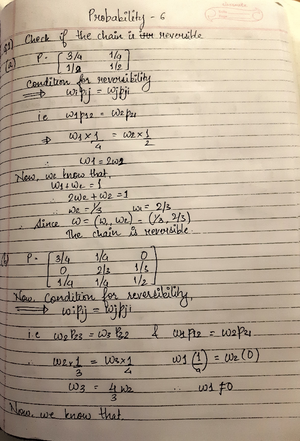 Probability - 6
Q1) Check if the chain is reversible
(a) P = [ 3/4 1/4
1/2 1/2 ]
Condition for reversibility
⟹ wipij = wjpji
i.e w1p12 = w2p21
⇒ w1 × 1/4 = w2 × 1/2
∴ w1 = 2w2
Now, we know that,
w1 + w2 = 1
∴ 2w2 + w2 = 1
w2 = 1/3 w1 = 2/3
∴ Since w = (w1, w2) = (1/3, 2/3)
The chain is reversible
b) P = [ 3/4 1/4 0
0 2/3 1/3
1/4 1/4 1/2 ]
Now, Condition for reversibility,
⟹ wipij = wjpji
i.e w2P23 = w3P32 & w1p12 = w2p21
w2 × 1/3 = w3 × 1/4 w1 (1/4) = w2 (0)
w3 = 4/3 w2 ∴ w1 ≠ 0
Now, we know that